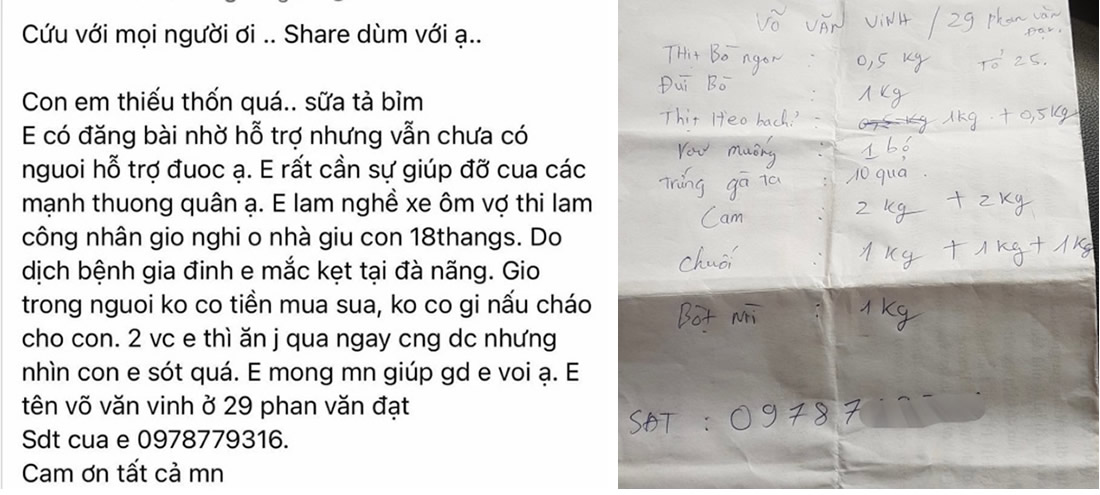 Cứu với mọi người ơi .. Share dùm với ạ..
Con em thiếu thốn quá.. sữa tả bỉm
E có đăng bài nhờ hỗ trợ nhưng vẫn chưa có
nguoi hỗ trợ đuoc ạ. E rất cần sự giúp đỡ cua các
mạnh thuong quân ạ. E lam nghề xe ôm vợ thi lam
công nhân gio nghi o nhà giu con 18thangs. Do
dịch bệnh gia đinh e mắc kẹt tại đà nãng. Gio
trong nguoi ko co tiền mua sua, ko co gi nấu cháo
cho con. 2 vc e thì ăn j qua ngay cng dc nhưng
nhìn con e sót quá. E mong mn giúp gd e voi ạ. E
tên võ văn vinh ở 29 phan văn đạt
Sdt cua e 0978779316.
Cam ơn tất cả mn
VÕ VĂN VINH / 29 phan văn
Đạt.
Thịt Bò ngon : 0,5 kg Tổ 25.
Đùi Bò : 1 kg
Thịt Heo bachỉ : 1kg + 0,5kg
rau muống : 1 bó
Trứng gà ta : 10 quả.
Cam : 2 kg + 2 kg
chuối : 1 kg + 1 kg + 1 kg
Bột mì : 1 kg
SĐT : 09787